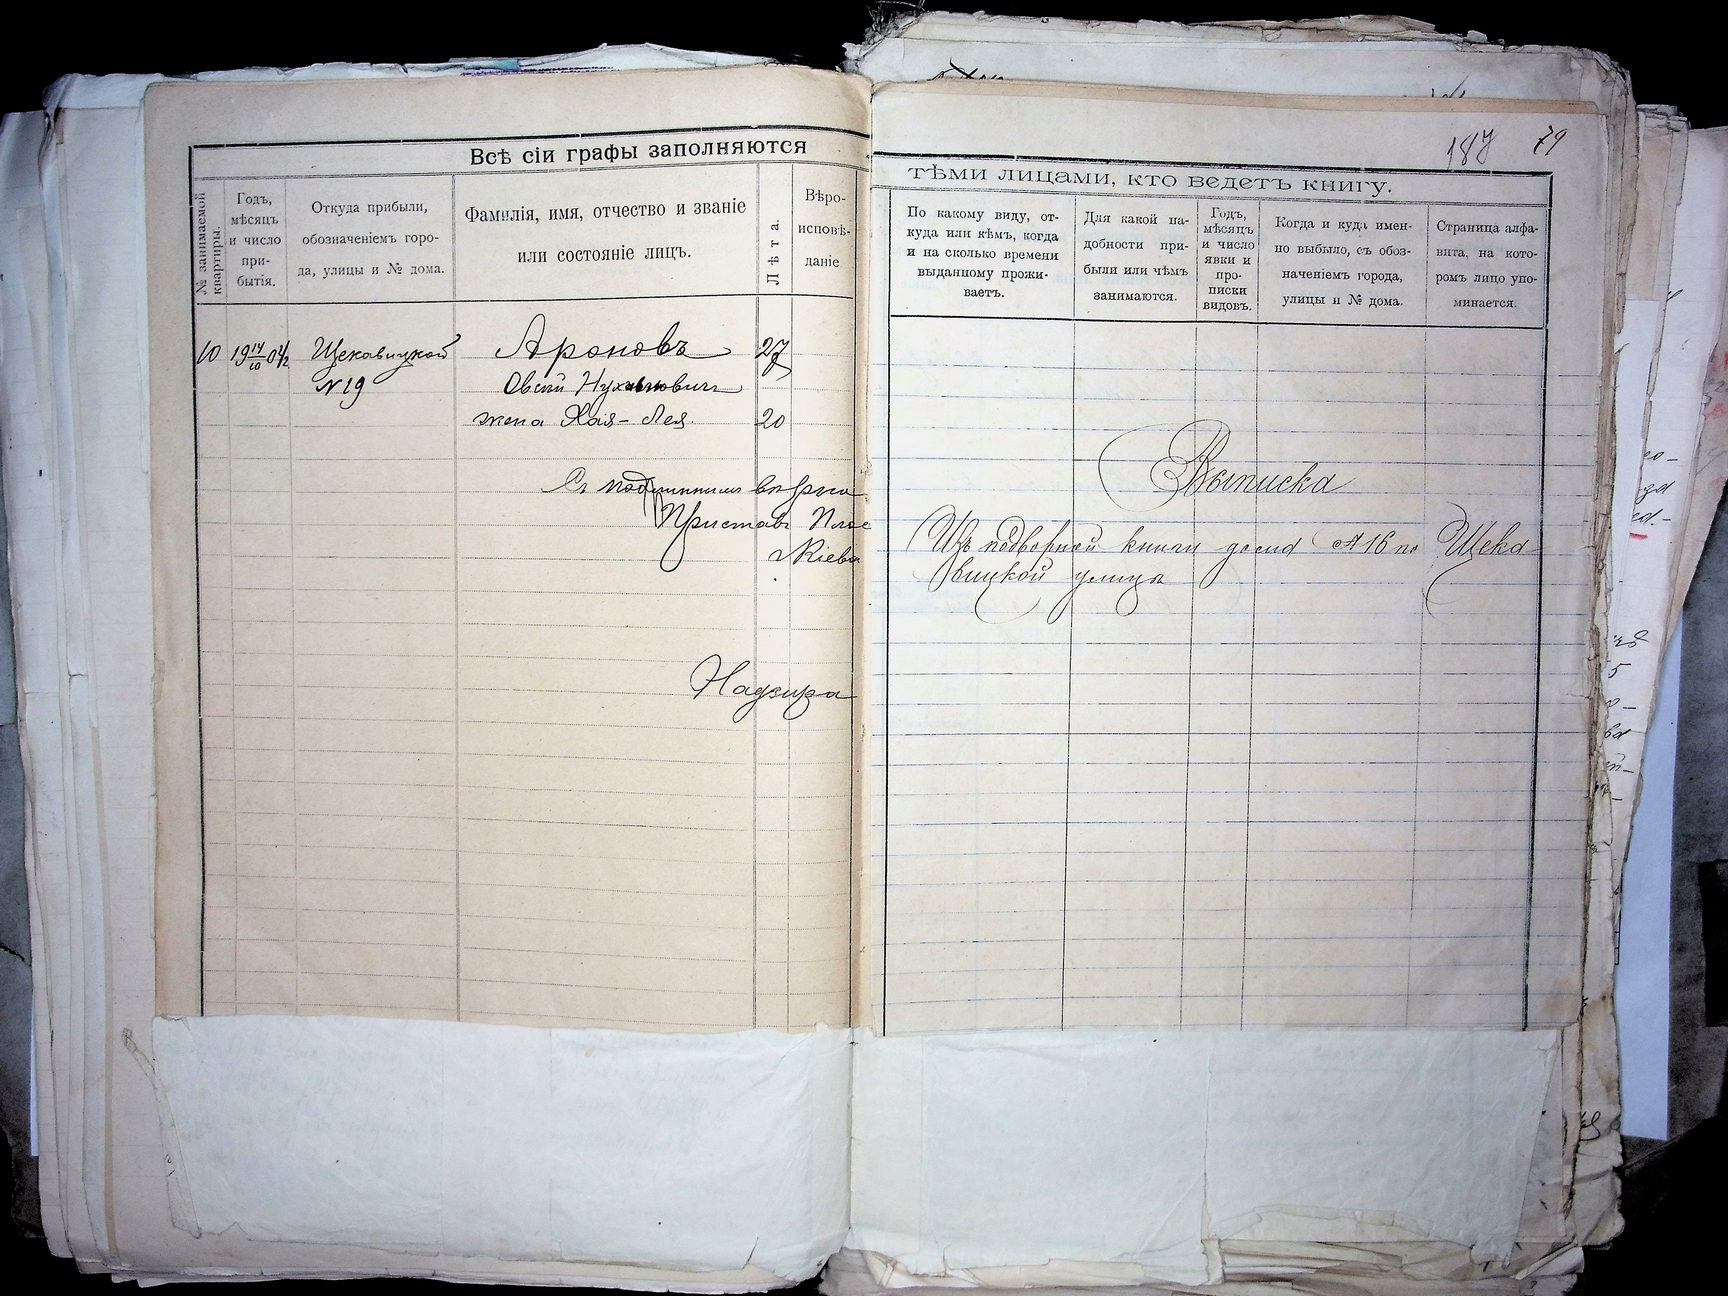 Всѣ сіи графы заполняются
тѣми лицами, кто ведетъ книгу.
187 79
№ занимаемой квартиры.
Годъ,
мѣсяцъ
и число
при-
бытія.
Откуда прибыли,
обозначеніемъ горо-
да, улицы и № дома.
Фамилія, имя, отчество и званіе
или состояніе лицъ.
Лѣта.
Вѣро-
исповѣ-
даніе
По какому виду, от-
куда или кѣмъ, когда
и на сколько времени
выданному прожи-
ваетъ.
Для какой на-
добности при-
были или чѣмъ
занимаются.
Годъ,
мѣсяцъ
и число
явки и
про-
писки
видовъ.
Когда и куда имен-
но выбыло, съ обоз-
наченіемъ города,
улицы и № дома.
Страница алфа-
вита, на кото-
ромъ лицо упо-
минается.
10 19 14/10 04/2 Щекавицкой Ароновъ 27
№19 Овсей Нухимовичъ
жена Хая-Лея. 20
Съ подлиннымъ вѣрно
Приставъ Плос
г Кіева
Надзира
Выписка
Изъ подворной книги дома №16 по Щека
вицкой улицы